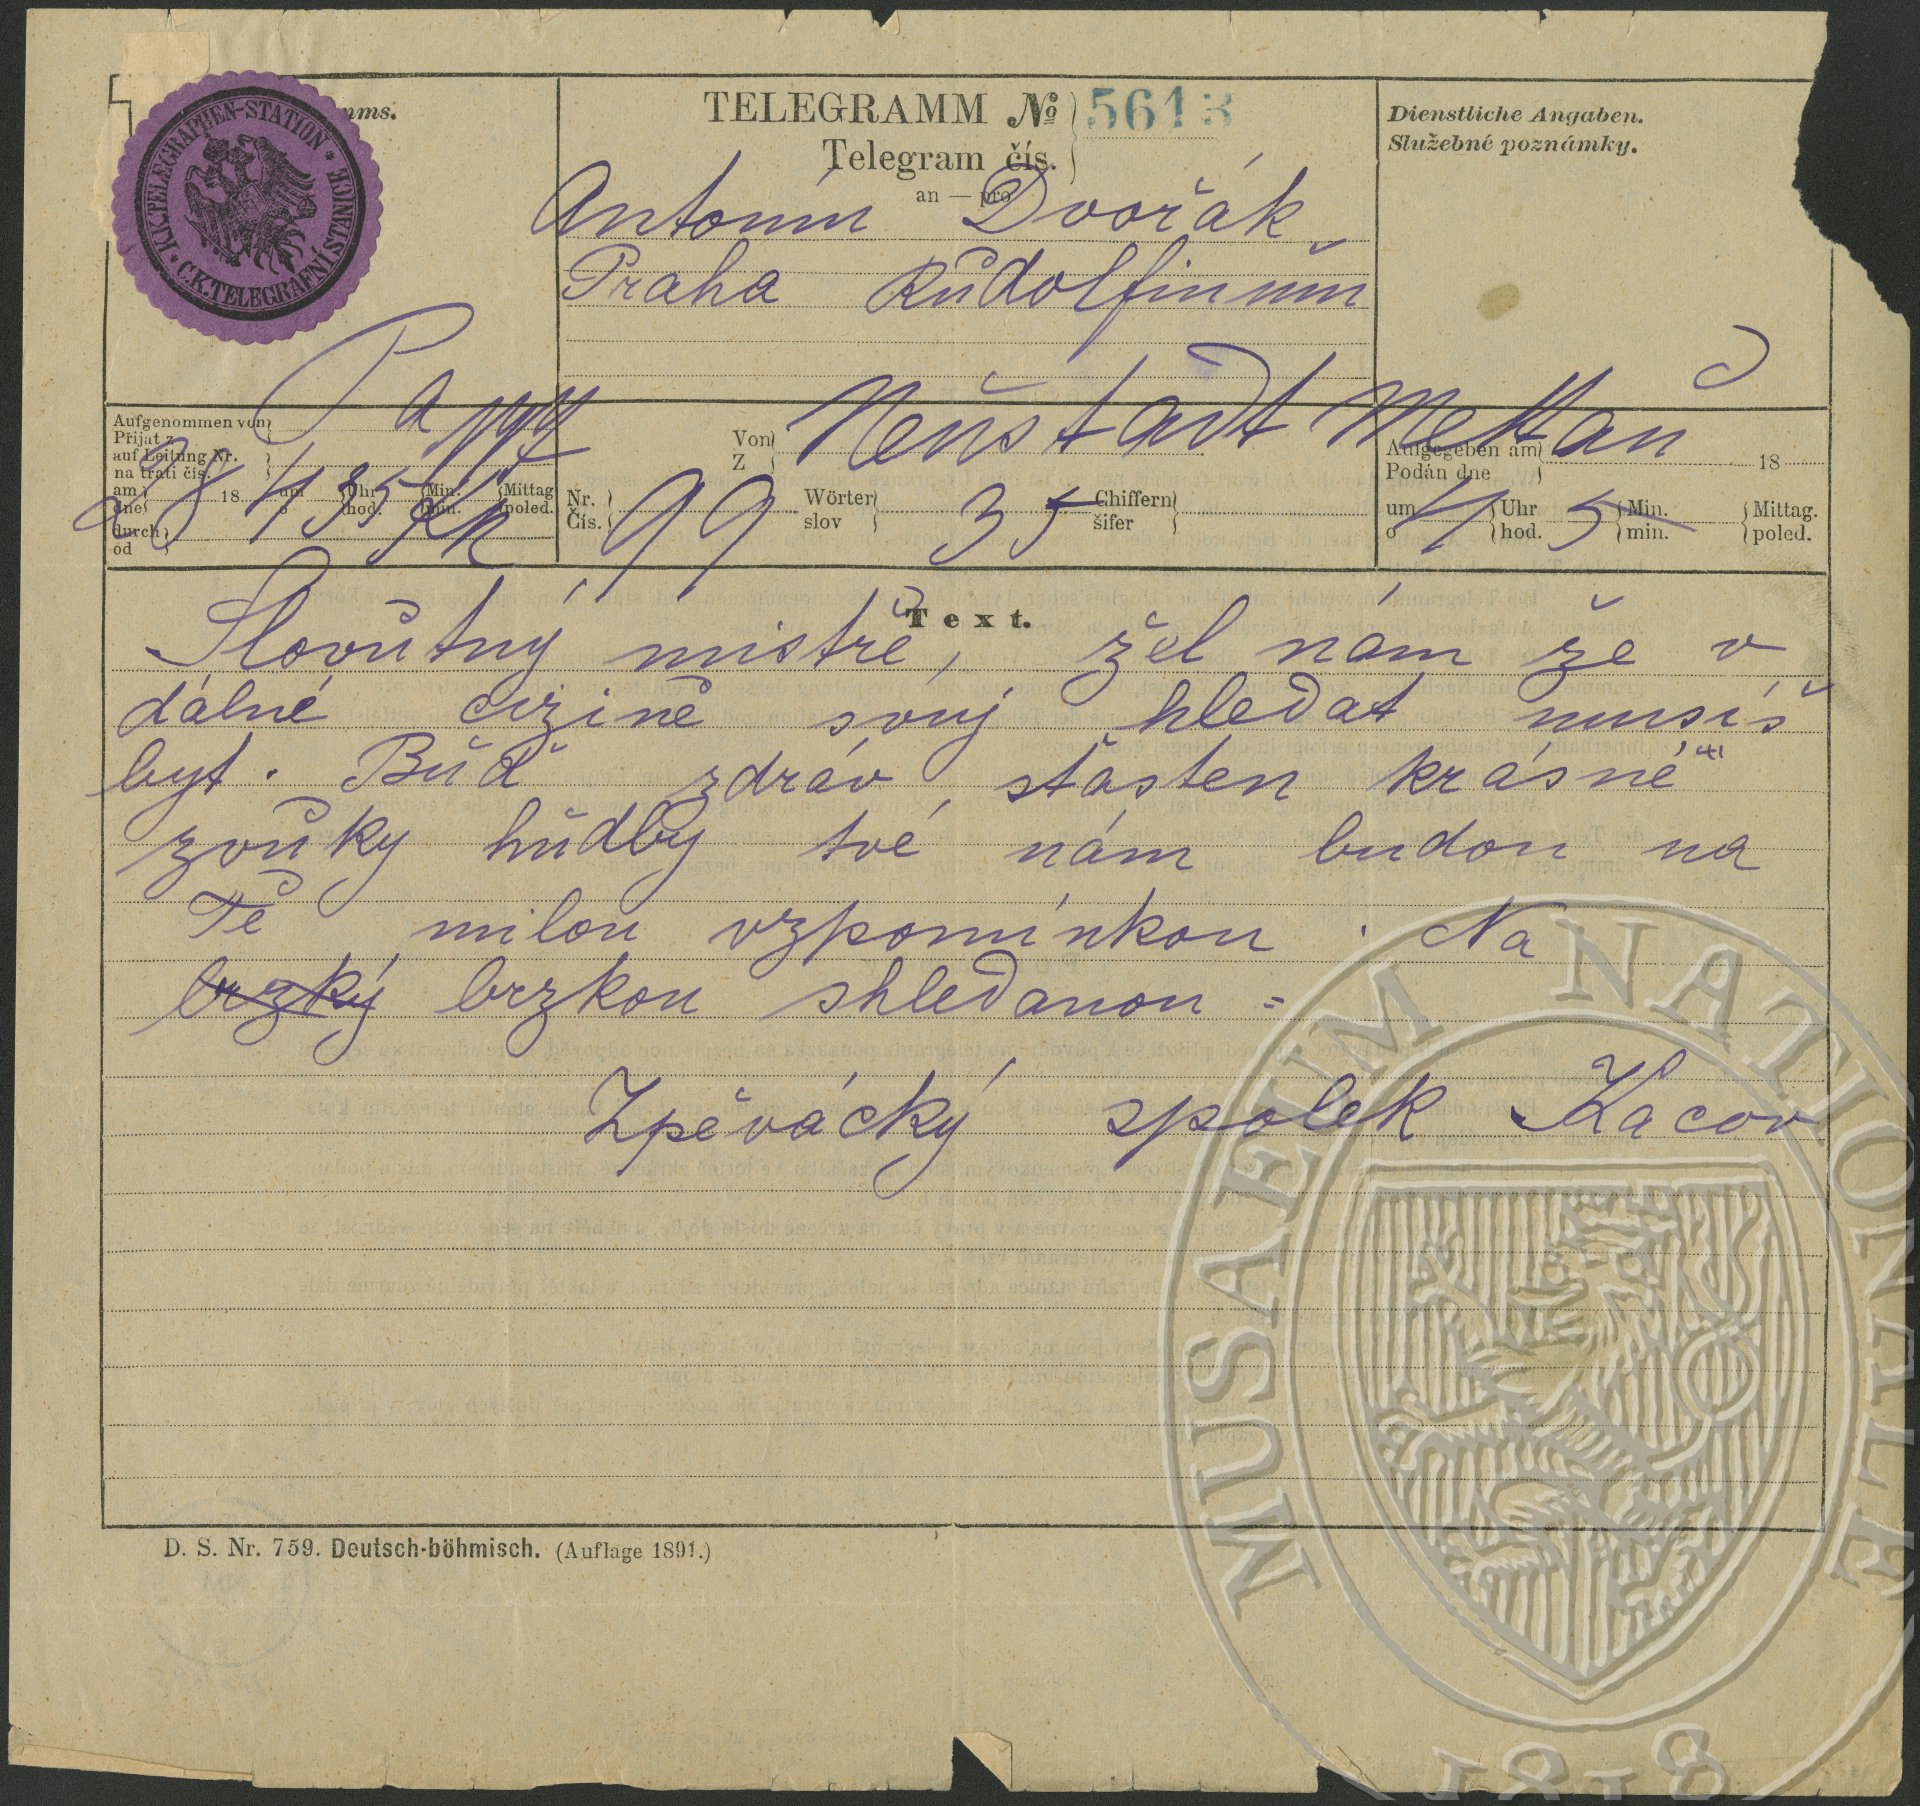 K.K.TELEGRAPHEN-STATION * C.K.TELEGRAFNÍ STANICE *
mms.
TELEGRAMM No 5613
Telegram čís.
an — pro
Antonín Dvořák
Praha Rudolfinum
Dienstliche Angaben.
Služebné poznámky.
Aufgenommen von
Přijat z
auf Leitung Nr.
na trati čís.
am 28 18 um 4 Uhr 35 Min. Mittag
dne o hod. min. poled.
durch
od
Von Neustadt Mettau
Z
Aufgegeben am 18
Podán dne
Nr. 99 Wörter 35 Chiffern
Čís. slov šifer
um 4 Uhr 5 Min. Mittag.
o hod. min. poled.
Text.
Slovutný mistře, žel nám že v
dálné cizině svůj hledat musíš
byt. Buď zdráv, stasten krásné
zvuky hudby tvé nám budou na
Tě milou vzpomínkou. Na
brzký brzkou shledanou =
Zpěvácký spolek Kacov
D. S. Nr. 759. Deutsch-böhmisch. (Auflage 1891.)
MUSAEUM NATIONALE
1818